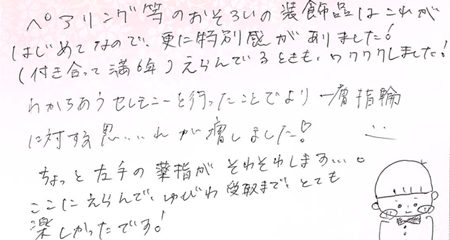 ペアリング等のおそろいの装飾品はこれが
はじめてなので、更に特別感がありました!
(付き合って満6年)えらんでるときも、ワクワクしました!
わかちあうセレモニーを行ったことでより一層指輪
に対する思い入れが増しました!♡
ちょっと左手の薬指がそわそわします…。
ここにえらんで、ゆびわ受取まで、とても
楽しかったです!